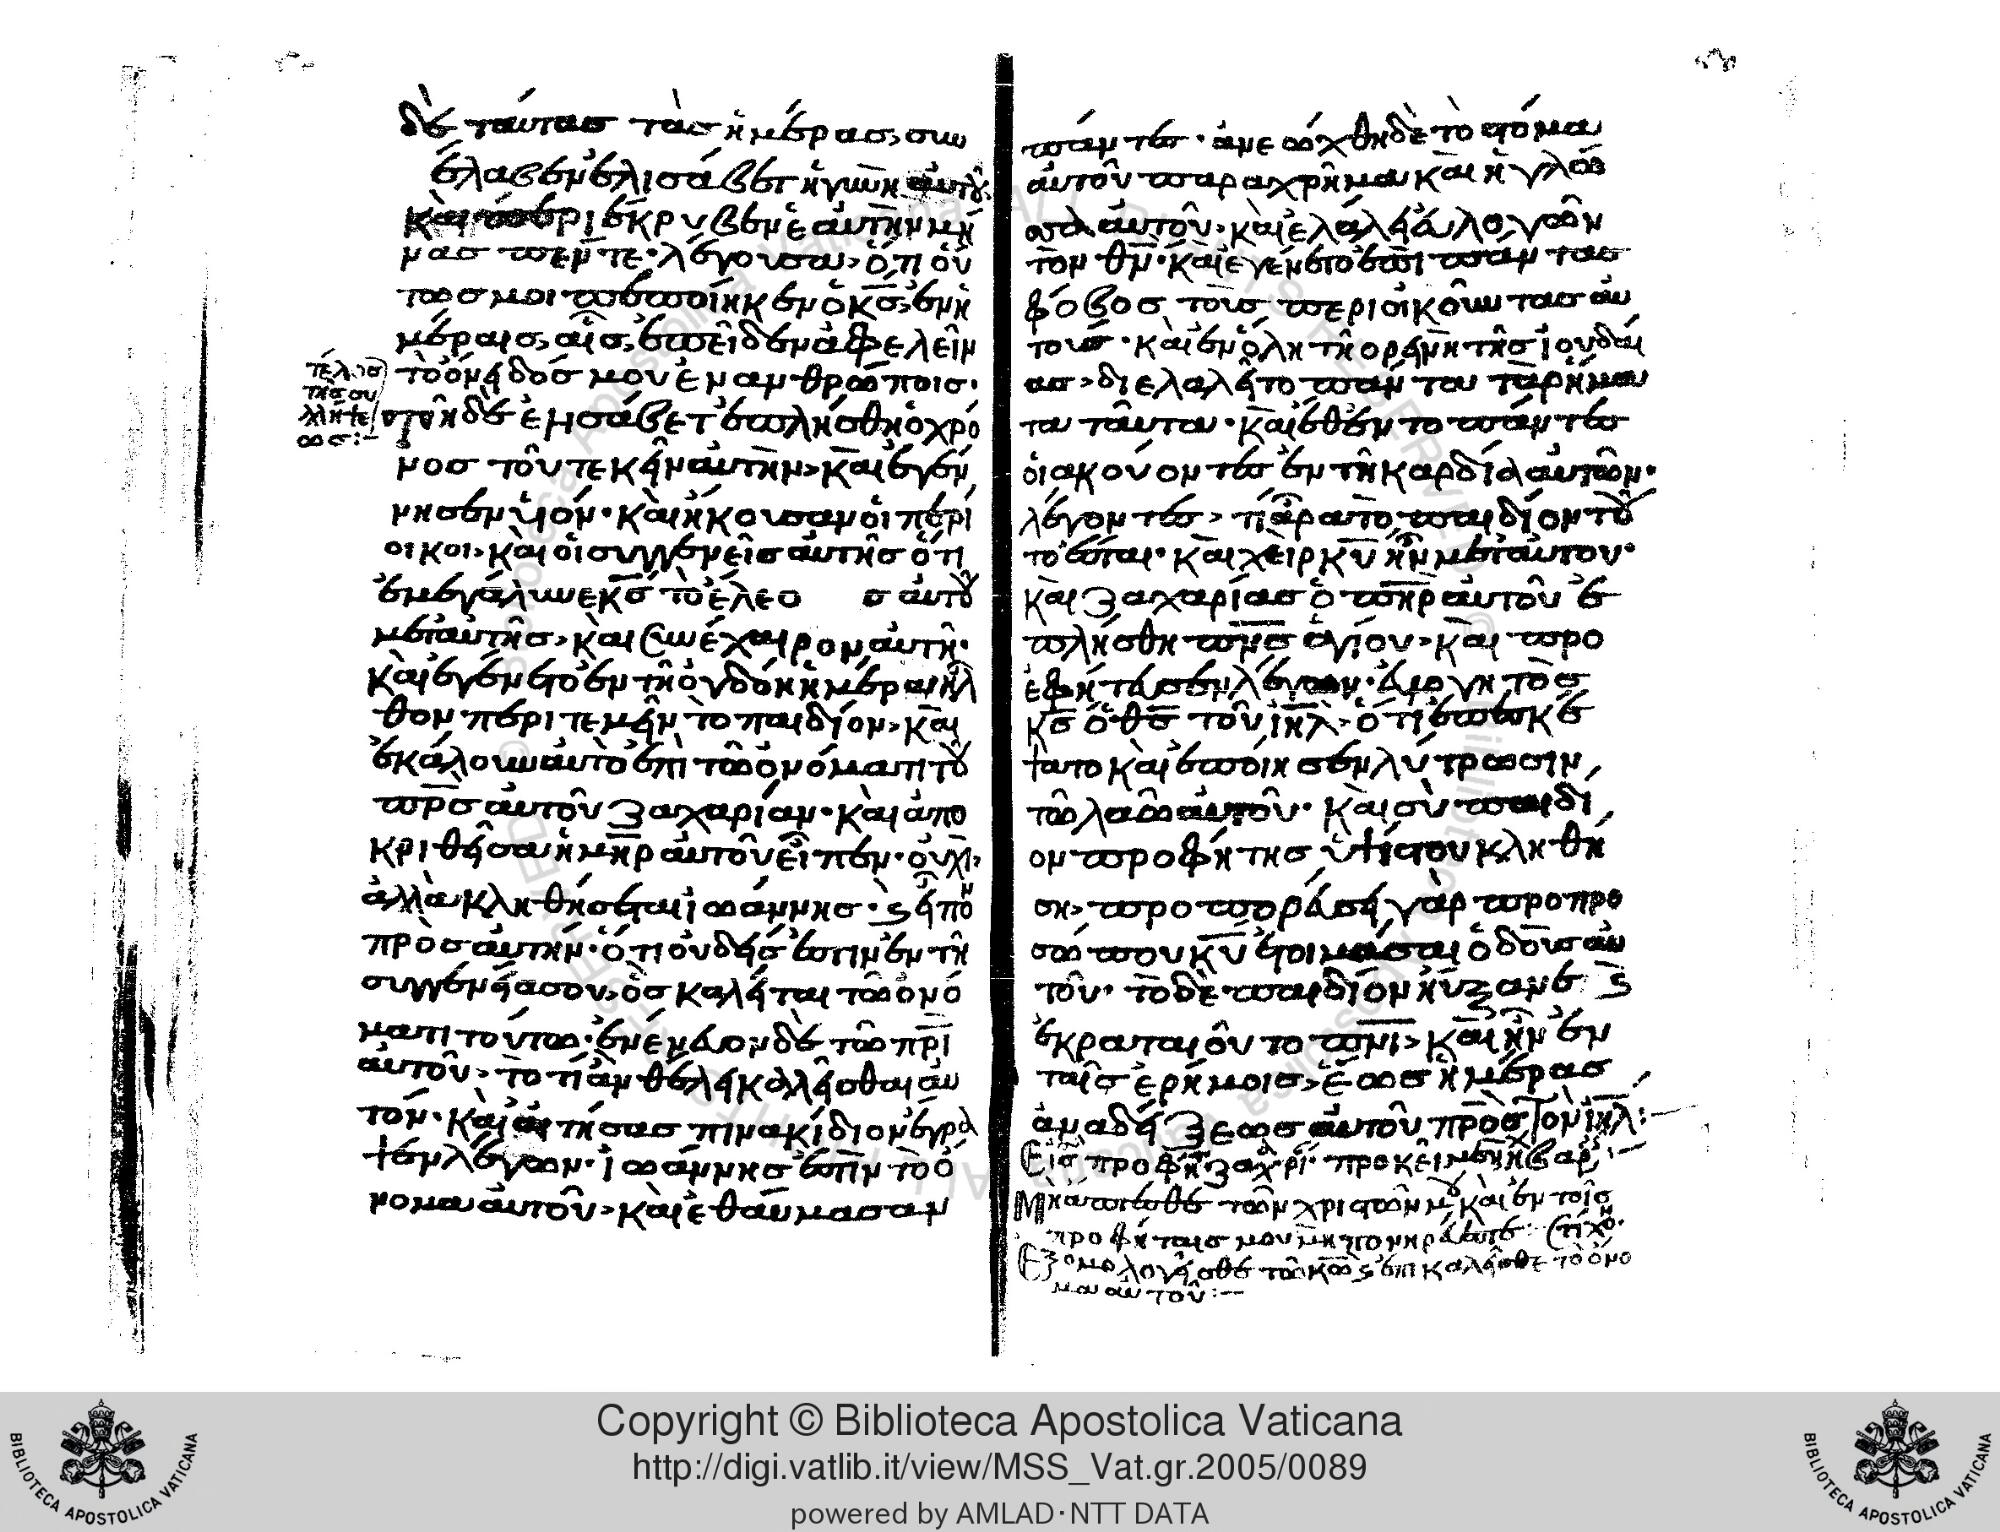 δὲ ταύτας τὰς ἡμέρας, συν
έλαβεν ἐλισάβετ ἡ γυνὴ αὐτοῦ·
καὶ περιέκρυβεν ἑαυτὴν μῆ
νας πέντε· λέγουσα, ὅτι οὕ
τως μοι πεποίηκεν ὁ κς, ἐν ἡ
μέραις, αἷς, ἐπεῖδεν ἀφελεῖν
τὸ ὄνειδός μου ἐν ἀνθρώποις·
τέλος
τῆς συ
λλήψε
ως:–
τῆ δὲ ἐλησάβετ ἐπλήσθη ὁ χρό
νος τοῦ τεκεῖν αὐτὴν, καὶ ἐγέν
νησεν υἱόν· καὶ ἤκουσαν οἱ περί
οικοι, καὶ οἱ συγγενεῖς αὐτῆς ὅτι
ἐμεγάλυνε κς τὸ ἔλεος αὐτοῦ
μετ αὐτῆς, καὶ συνέχαιρον αὐτῆ·
καὶ ἐγένετο ἐν τῆ ὀγδόη ἡμέρα ἦλ
θον περιτεμεῖν τὸ παιδίον, καὶ
ἐκάλουν αὐτὸ ἐπὶ τῶ ὀνόματι τοῦ
πρς αὐτοῦ ζαχαρίαν· καὶ ἀπο
κριθεῖσα ἡ μηρ αὐτοῦ εἶπεν· οὐχὶ,
ἀλλὰ κληθήσεται ἰωάννης· ϗ εἶπον
πρὸς αὐτήν· ὅτι οὐδείς ἐστιν ἐν τῆ
συγγενεία σου, ὃς καλεῖται τῶ ὀνό
ματι τούτω· ἐνένευον δὲ τῶ πρι
αὐτοῦ, τὸ τί ἂν θέλει καλεῖσθαι αὐ
τόν· καὶ αἰτήσας πινακίδιον ἔγρα
ψεν λέγων· ἰωάννης ἐστὶν τὸ ὄ
νομα αὐτοῦ, καὶ ἐθαύμασαν
πάντες· ἀνεώχθη δὲ τὸ στόμα
αὐτοῦ παραχρῆμα καὶ ἡ γλῶσ
σα αὐτοῦ· καὶ ἐλάλει εὐλογῶν
τὸν θν· καὶ ἐγένετο ἐπὶ πάντας
φόβος τοὺς περιοικοῦντας αὐ
τούς· καὶ ἐν ὅλη τῆ ορεινῆ τῆς ἰουδαί
ας, διελαλεῖτο πάντα τὰ ρήμα
τα ταῦτα· καὶ ἔθεντο πάντες
οἱ ἀκούοντες ἐν τῆ καρδία αὐτῶν·
λέγοντες, τί ἄρα τὸ παιδίον τοῦ
το ἔσται· καὶ χεὶρ κυ ἦν μετ αυτου·
καὶ ζαχαρίας ὁ πηρ αὐτοῦ ἐ
πλήσθη πνς ἁγίου, καὶ προ
εφήτευσεν λέγων· εὐλογητὸς
κς ὁ θς τοῦ ἰηλ, ὅτι ἐπεσκέ
ψατο καὶ ἐποίησεν λύτρωσιν
τῶ λαῶ αὐτοῦ· καὶ σὺ παιδί
ον προφήτης ὑψίστου κληθή
ση, προπορεύσει γὰρ προ προ
σώπου κυ ἑτοιμάσαι ὁδοὺς αὐ
τοῦ· τὸ δὲ παιδίον ηὔξανε ϗ
ἐκραταιοῦτο πνι, καὶ ἦν ἐν
ταῖς ἐρήμοις, ἕως ἡμέρας
ἀναδείξεως αὐτοῦ πρὸς τὸν ἰηλ:
Εἰς προφή ζαχρί· προκείμενη βαρ
Μὴ ἅπτεσθε τῶν χριστῶν μου καὶ ἐν τοῖς
προφήταις μου μὴ πονηρεύεσθε· στίχον·
Εξομολογεῖσθε τῶ κω ϗ ἐπικαλεῖσθε τὸ ὄνο
μα αὐτοῦ:–
Copyright © Biblioteca Apostolica Vaticana
http://digi.vatlib.it/view/MSS_Vat.gr.2005/0089
powered by AMLAD·NTT DATA
BIBLIOTECA APOSTOLICA VATICANA
BIBLIOTECA APOSTOLICA VATICANA